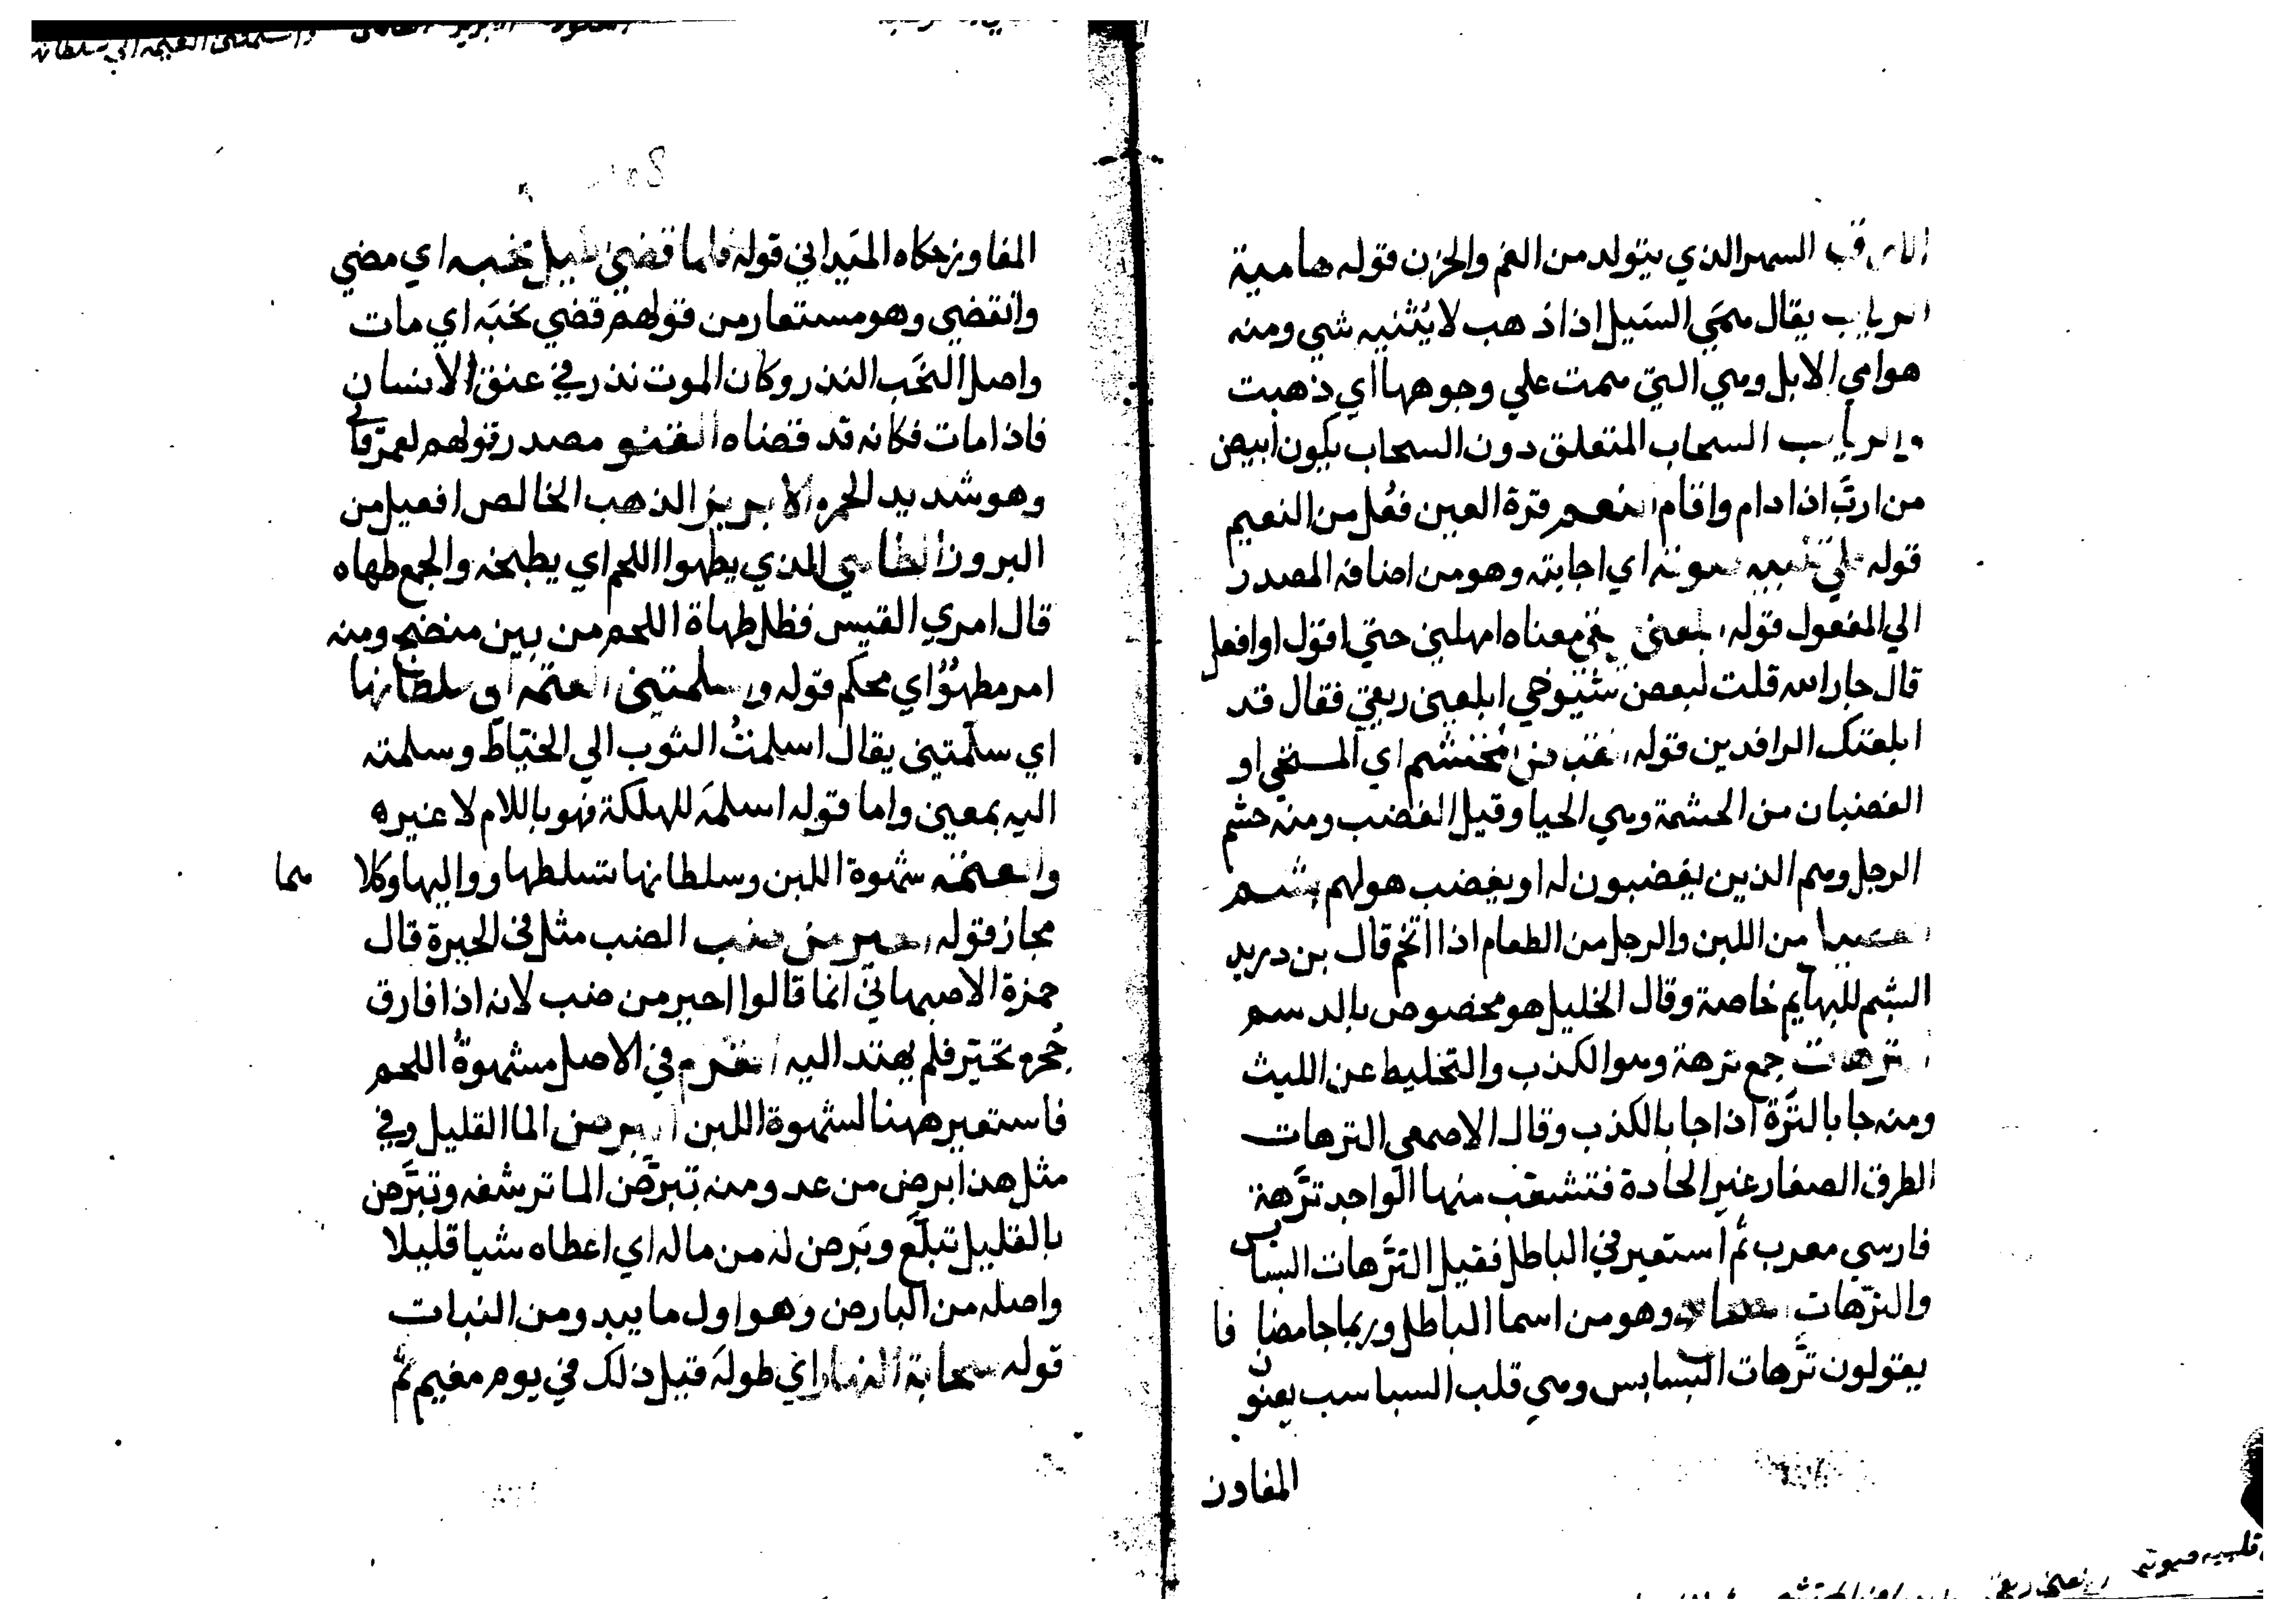 السهر الذي يتولد من الغم والحزن قوله هامية
يقال همي السيل اذا ذهب لا يثنيه شي ومنه
هوامي الابل وهي التي همت علي وجوهها اي ذهبت
السحاب المتعلق دون السحاب يكون ابيض
من اربَّ اذا دام واقام قرة العين فُعل من النعيم
قوله اي اجابته وهو من اضافه المصدر
الي المفعول قوله معناه امهلني حتي اقول او افعل
قال جار الله قلت لبعض شيوخي ابلعني ريقي فقال قد
ابلعتك الرافدين قوله اي المستحي او
الغضبان من الحشمة وهي الحيا وقيل الغضب ومنه حشم
الرجل وهم الذين يغضبون له او يغضب هو لهم بشم
من اللبن والرجل من الطعام اذا اتخم قال بن دريد
البشم للبهايم خاصة وقال الخليل هو مخصوص بالدسم
ترهات جمع ترهة وهو الكذب والتخليط عن الليث
ومنه جا بالتُّرَّة اذا جا بالكذب وقال الاصمعي الترهات
الطرق الصغار غير الجادة فتشعب منها الواحد ترَّهة
فارسي معرب ثم استعير في الباطل فقيل الترَّهات البسابس
والترّهات وهو من اسما الباطل وربما جا مضافا
يقولون ترَّهات البسابس وهي قلب السباسب يعنون
المفاوز
المفاوز حكاه الميَداني قوله فلما قضي الليل نحبه اي مضي
وانقضي وهو مستعار من قولهم قضي نحبَه اي مات
واصل النحَب النذر وكان الموت نذر في عنق الانسان
فاذا مات فكانه قد قضاه مصدر قولهم احمر قاني
وهو شديد الحمره الابريز الذهب الخالص افعيل من
البروز الطاهي الذي يطهوا اللحم اي يطبخه والجمع طهاه
قال امري القيس فظل طهاة اللحم من بين منضج ومنه
امر مطهوٌّ اي محكم قوله واسلمتني العيمة الي سلطانها
اي سلّمتني يقال اسلمتُ الثوب الي الخيّاط وسلمته
اليه بمعني واما قوله اسلمَه للهلكة فهو باللام لا غيره
والعيمه شهوة اللبن وسلطانها تسلطها وواليها وكلاهما
مجاز قوله احير من ضب الضب مثل في الحيرة قال
حمزة الاصبهاني انما قالوا احير من ضب لانه اذا فارق
جُحره تحيّر فلم يهتد اليه القرم في الاصل شهوةُ اللحم
فاستعير ههنا لشهوة اللبن البرض الما القليل وفي
مثل هذا برض من عد ومنه تبرَّض الما ترشفه وتبرَّض
بالقليل تبلَّغ وبَرض له من ماله اي اعطاه شيا قليلا
واصله من البارض وهو اول ما يبدو من النبات
قوله سحابة النهار اي طولَه قيل ذلك في يوم مغيم ثم